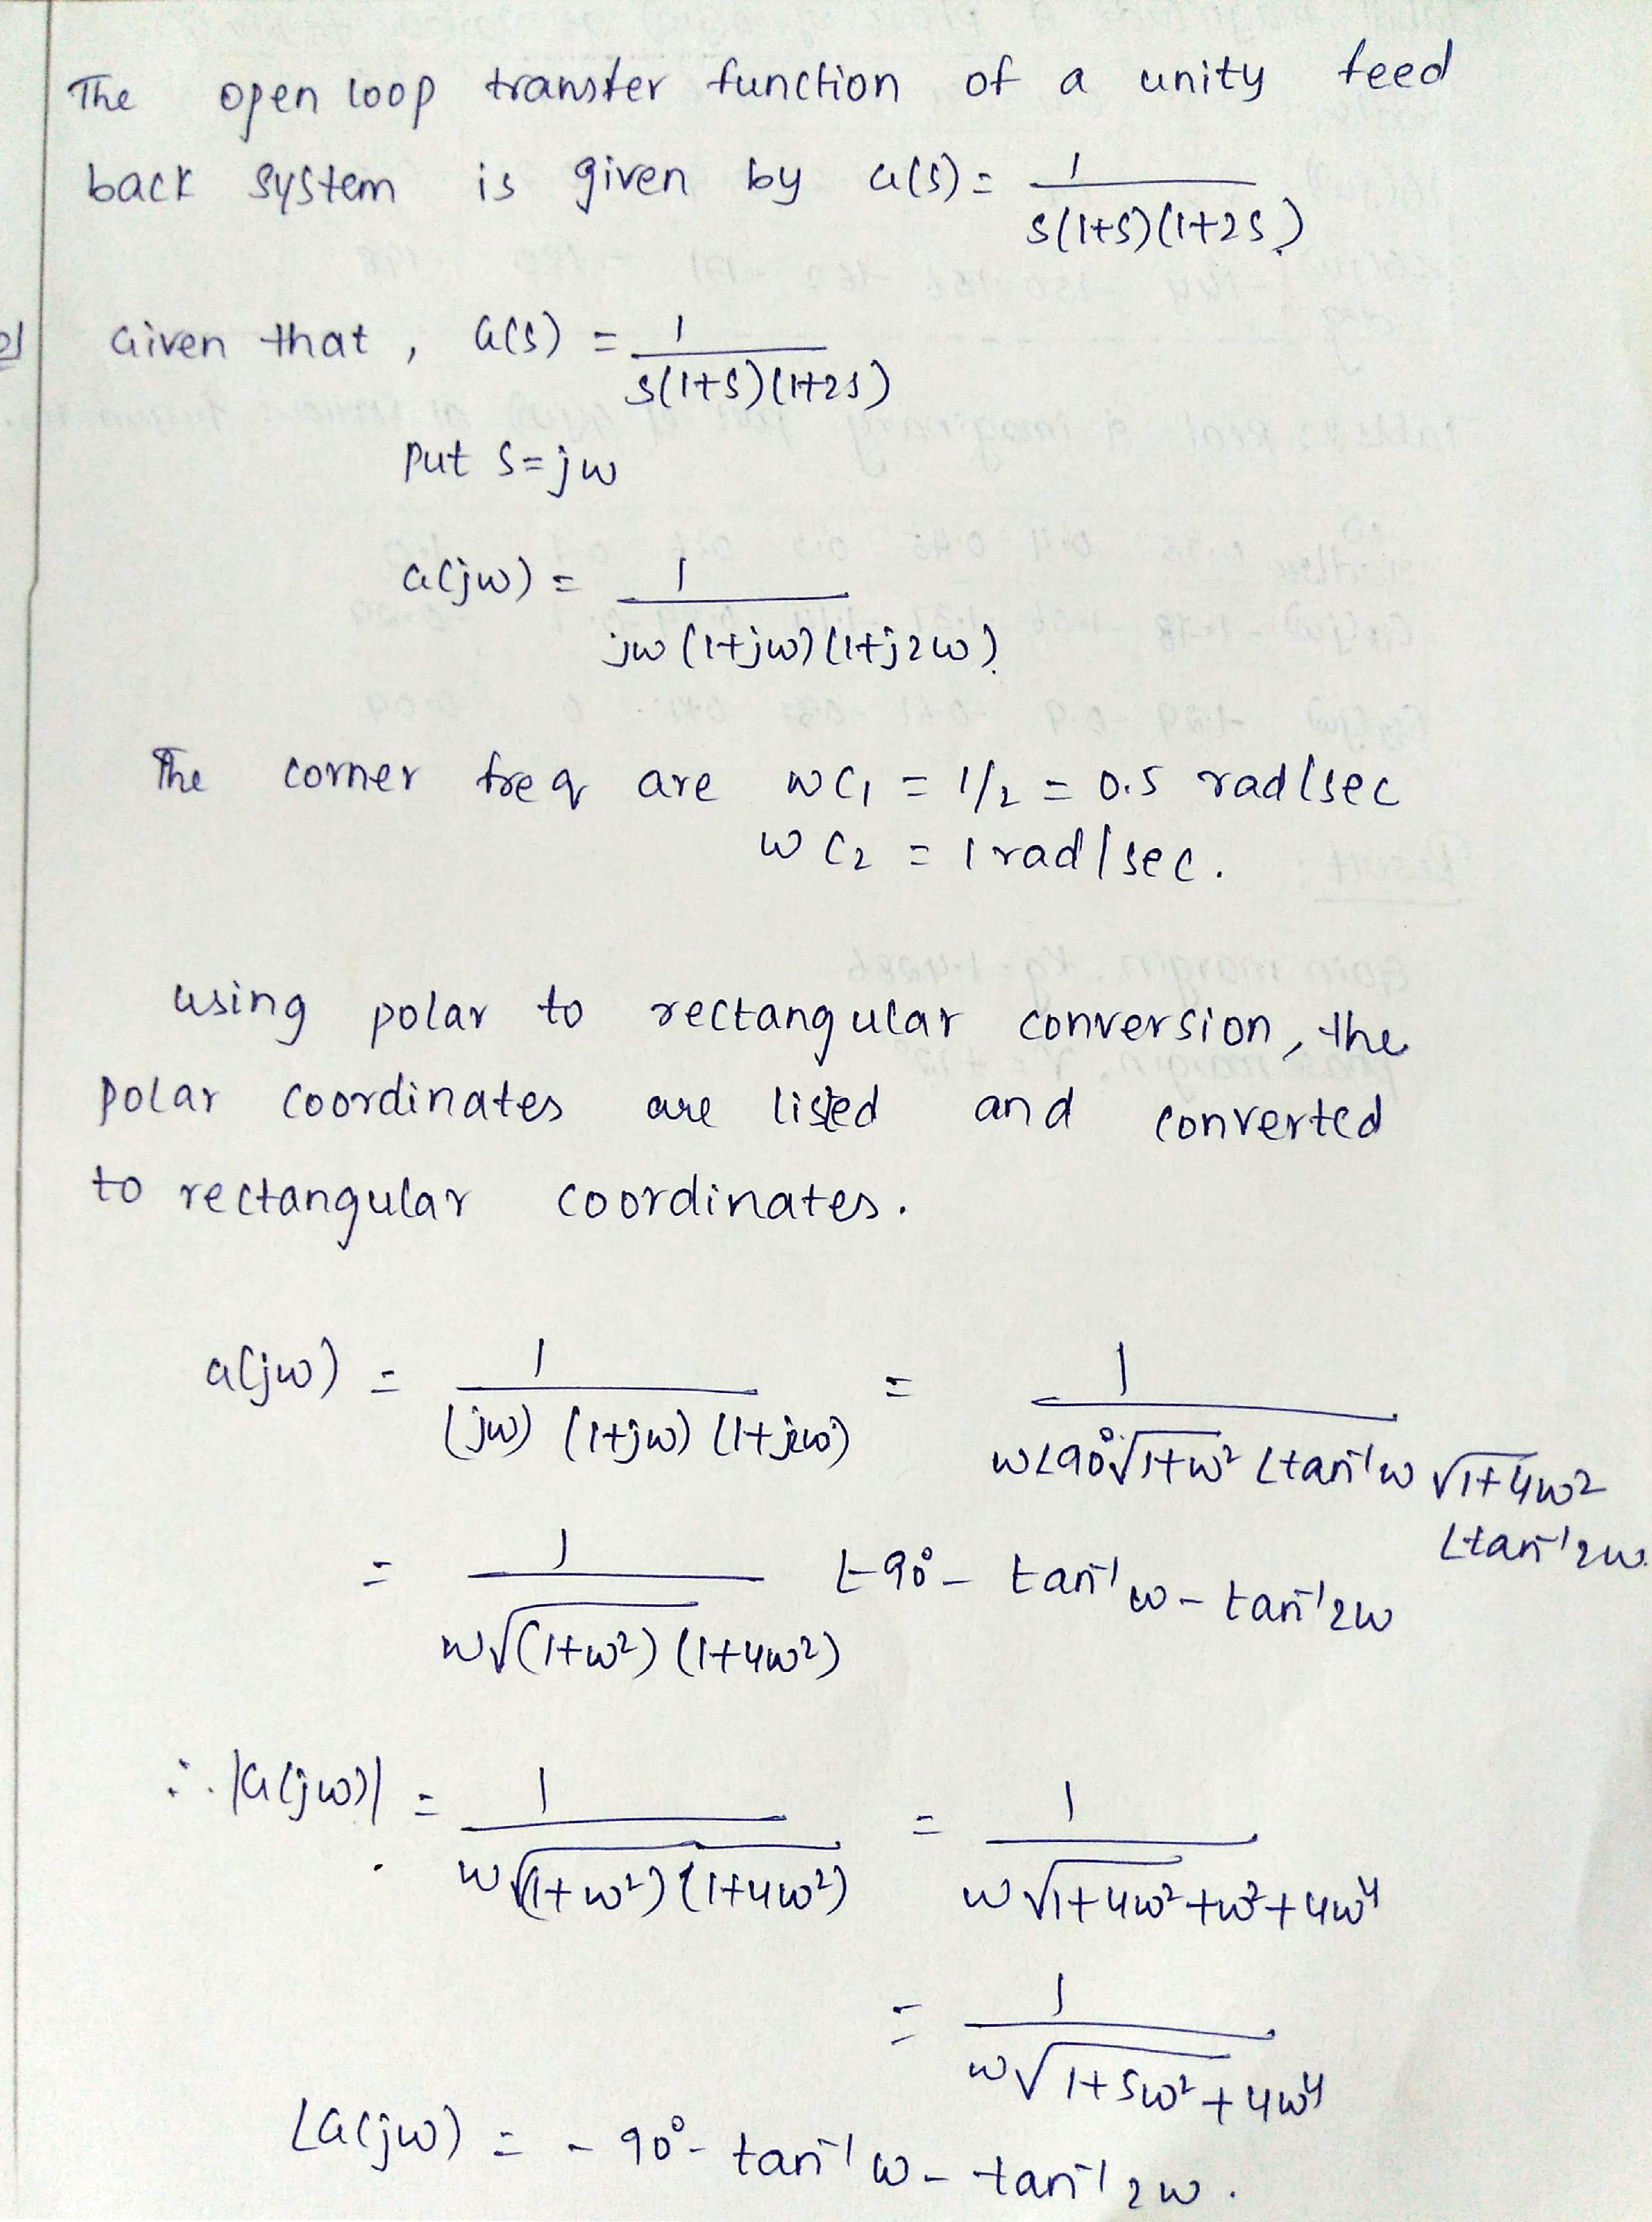 The open loop transfer function of a unity feed
back system is given by G(s) = 1/s(1+s)(1+2s)
Given that, G(s) = 1/s(1+s)(1+2s)
Put s=jω
G(jω) = 1/jω(1+jω)(1+j2ω)
The corner freq are ωC1 = 1/2 = 0.5 rad/sec
ωC2 = 1 rad/sec.
using polar to rectangular conversion, the
polar coordinates are listed and converted
to rectangular coordinates.
G(jω) = 1/(jω)(1+jω)(1+j2ω) = 1/ω∠90°√1+ω² ∠tan⁻¹ω √1+4ω² ∠tan⁻¹2ω
= 1/ω√(1+ω²)(1+4ω²) ∠-90°- tan⁻¹ω - tan⁻¹2ω
∴ |G(jω)| = 1/ω√(1+ω²)(1+4ω²) = 1/ω√1+4ω²+ω²+4ω⁴
= 1/ω√1+5ω²+4ω⁴
∠G(jω) = -90°- tan⁻¹ω - tan⁻¹2ω.